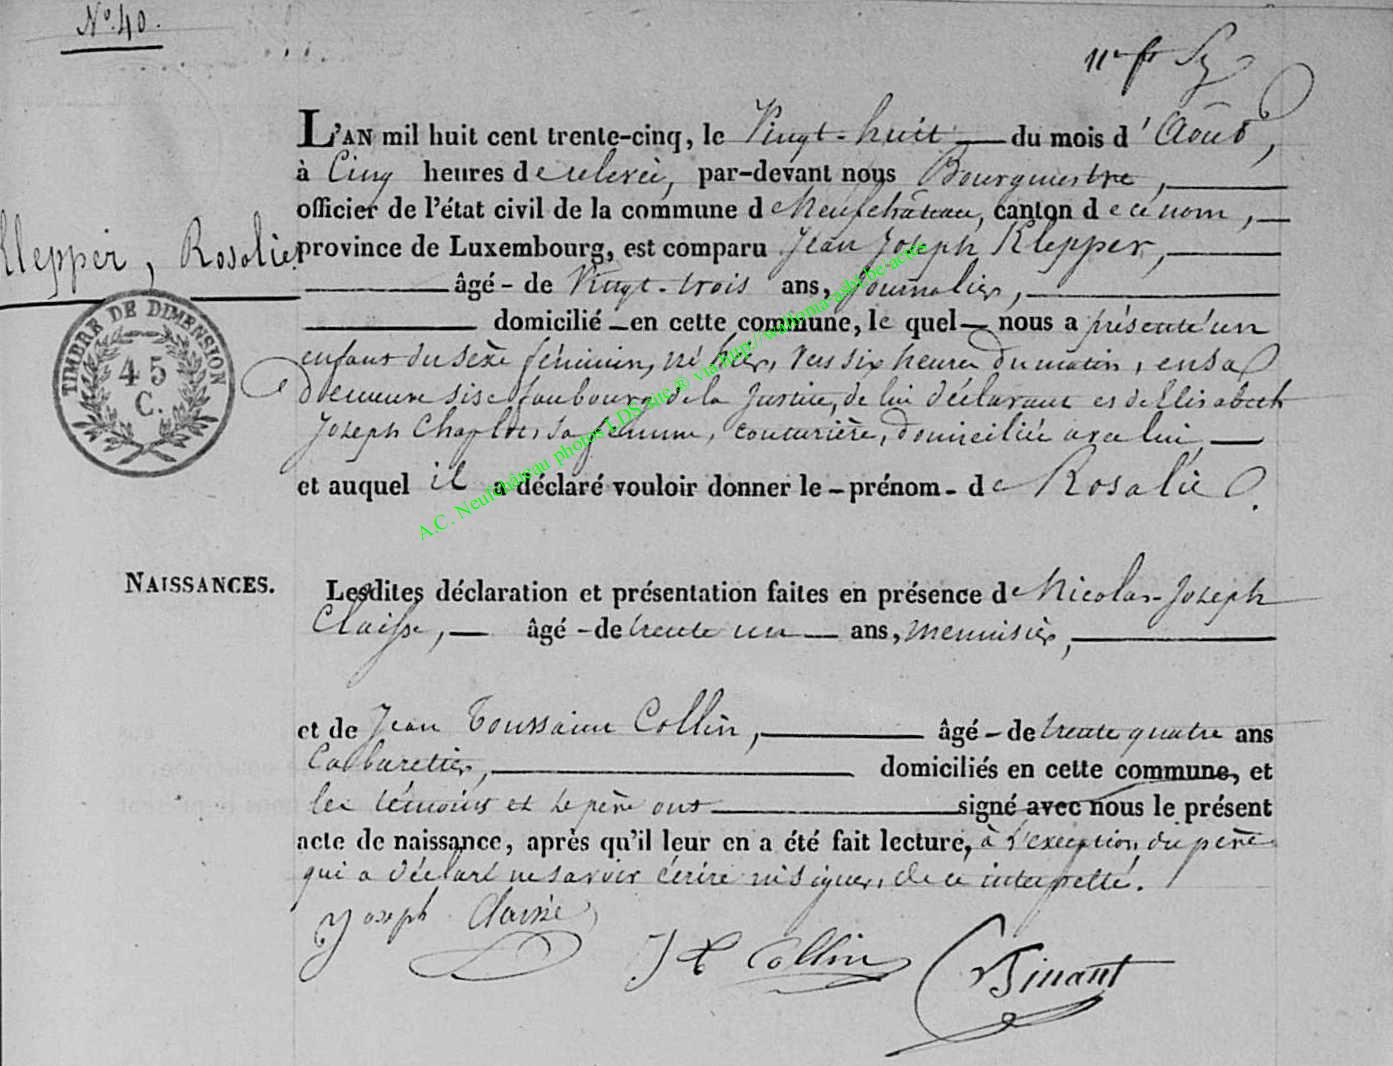 N.º 40.
L'AN mil huit cent trente-cinq, le Vingt-huit du mois d'Août,
à Cinq heures de relevée, par-devant nous Bourgmestre,
officier de l'état civil de la commune de Neufchâteau, canton de ce nom,
Klepper, Rosalie.
province de Luxembourg, est comparu Jean Joseph Klepper,
âgé - de Vingt-trois ans, Journalier,
TIMBRE DE DIMENSION
45
C.
domicilié en cette commune, lequel nous a présenté un
enfant du sexe féminin, né hier, vers six heures du matin, en sa
demeure sise faubourg de la Justice, de lui déclarant et de Elisabeth
Joseph Chaplier sa femme, couturière, domiciliée avec lui
et auquel il a déclaré vouloir donner le - prénom - de Rosalie.
A.C. Neufchâteau photos LDS-mc @ via http://wallonia-asbl.be/actes
NAISSANCES.
Lesdites déclaration et présentation faites en présence de Nicolas-Joseph
Claisse, âgé - de trente un ans, menuisier,
et de Jean Toussaint Collin, âgé - de trente quatre ans
Cabaretier, domiciliés en cette commune, et
les témoins et le père ont signé avec nous le présent
acte de naissance, après qu'il leur en a été fait lecture, à l'exception du père
qui a déclaré ne savoir écrire ni signer, de ce interpellé.
Joseph Claisse
J T Collin
Binant